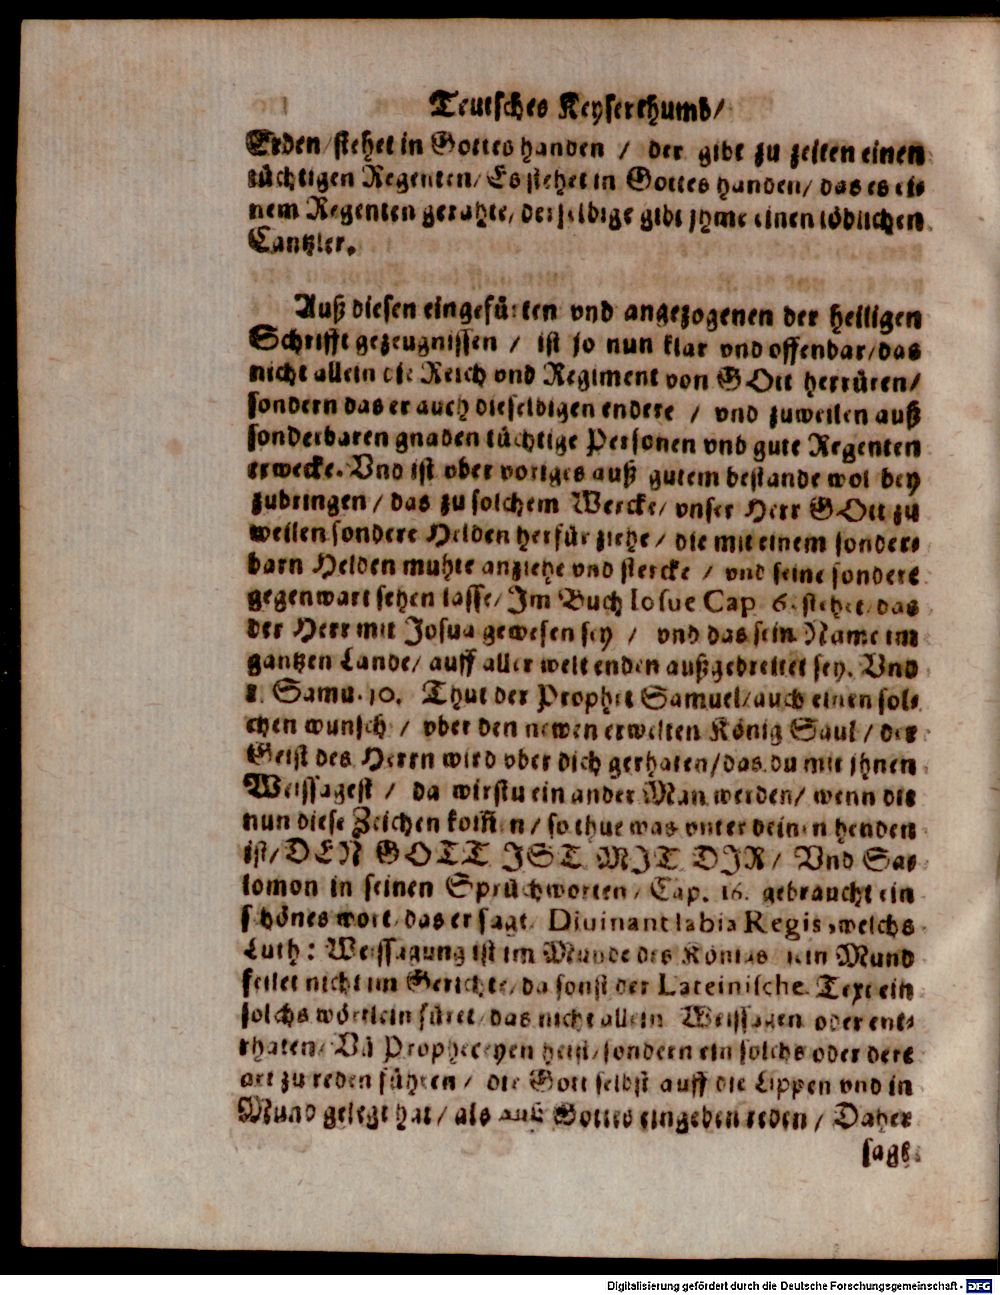 Teutsches Keyserthumb/
Erden/stehet in Gottes handen / der gibt zu zeiten einen
tüchtigen Regenten/ Es stehet in Gottes handen/ das es ei⸗
nem Regenten gerahte/ derselbige gibt jhme einen löblichen
Cantzler.
Auß diesen eingefürten vnd angezogenen der heiligen
Schrifft gezeugnissen / ist so nun klar vnd offenbar/das
nicht allein die Reich vnd Regiment von GOtt herrüren/
sondern das er auch dieselbigen endere / vnd zuweilen auß
sonderbaren gnaden tüchtige Personen vnd gute Regenten
erwecke. Vnd ist vber voriges auß gutem bestande wol bey
zubringen / das zu solchem Wercke/ vnser Herr GOtt zu
weilen sondere Helden herfür ziehe / die mit einem sonder⸗
barn Helden muhte anziehe vnd stercke / vnd seine sondere
gegenwart sehen lasse/ Im Buch Iosue Cap 6. stehet/ das
der Herr mit Josua gewesen sey / vnd das sein Name im
gantzen Lande/ auff aller welt enden außgebreitet sey. Vnd
1. Samu. 10. Thut der Prophet Samuel/auch einen sol⸗
chen wunsch / vber den newen erwelten König Saul / der
Geist des Herrn wird vber dich gerhaten/das du mit jhnen
Weissagest / da wirstu ein ander Man werden/ wenn dir
nun diese Zeichen kom̃en/ so thue was vnter deinen henden
ist/ DEN GOTT IST MIT DIR / Vnd Sa⸗
lomon in seinen Sprüchworten/ Cap. 16. gebraucht ein
schönes wort/ das er sagt/ Diuinant labia Regis, welchs
Luth: Weissagung ist im Munde des Königs sein Mund
feilet nicht im Gerichte/ da sonst der Lateinische Text ein
solchs wörtlein füret/ das nicht allein Weissagen oder ent⸗
rhaten/ Vñ Propheceyen heist/sondern ein solchs oder dere
art zu reden führen / die Gott selbst auff die Lippen vnd in
Mund gelegt hat/ als auß Gottes eingeben reden / Daher
sagt
Digitalisierung gefördert durch die Deutsche Forschungsgemeinschaft - DFG